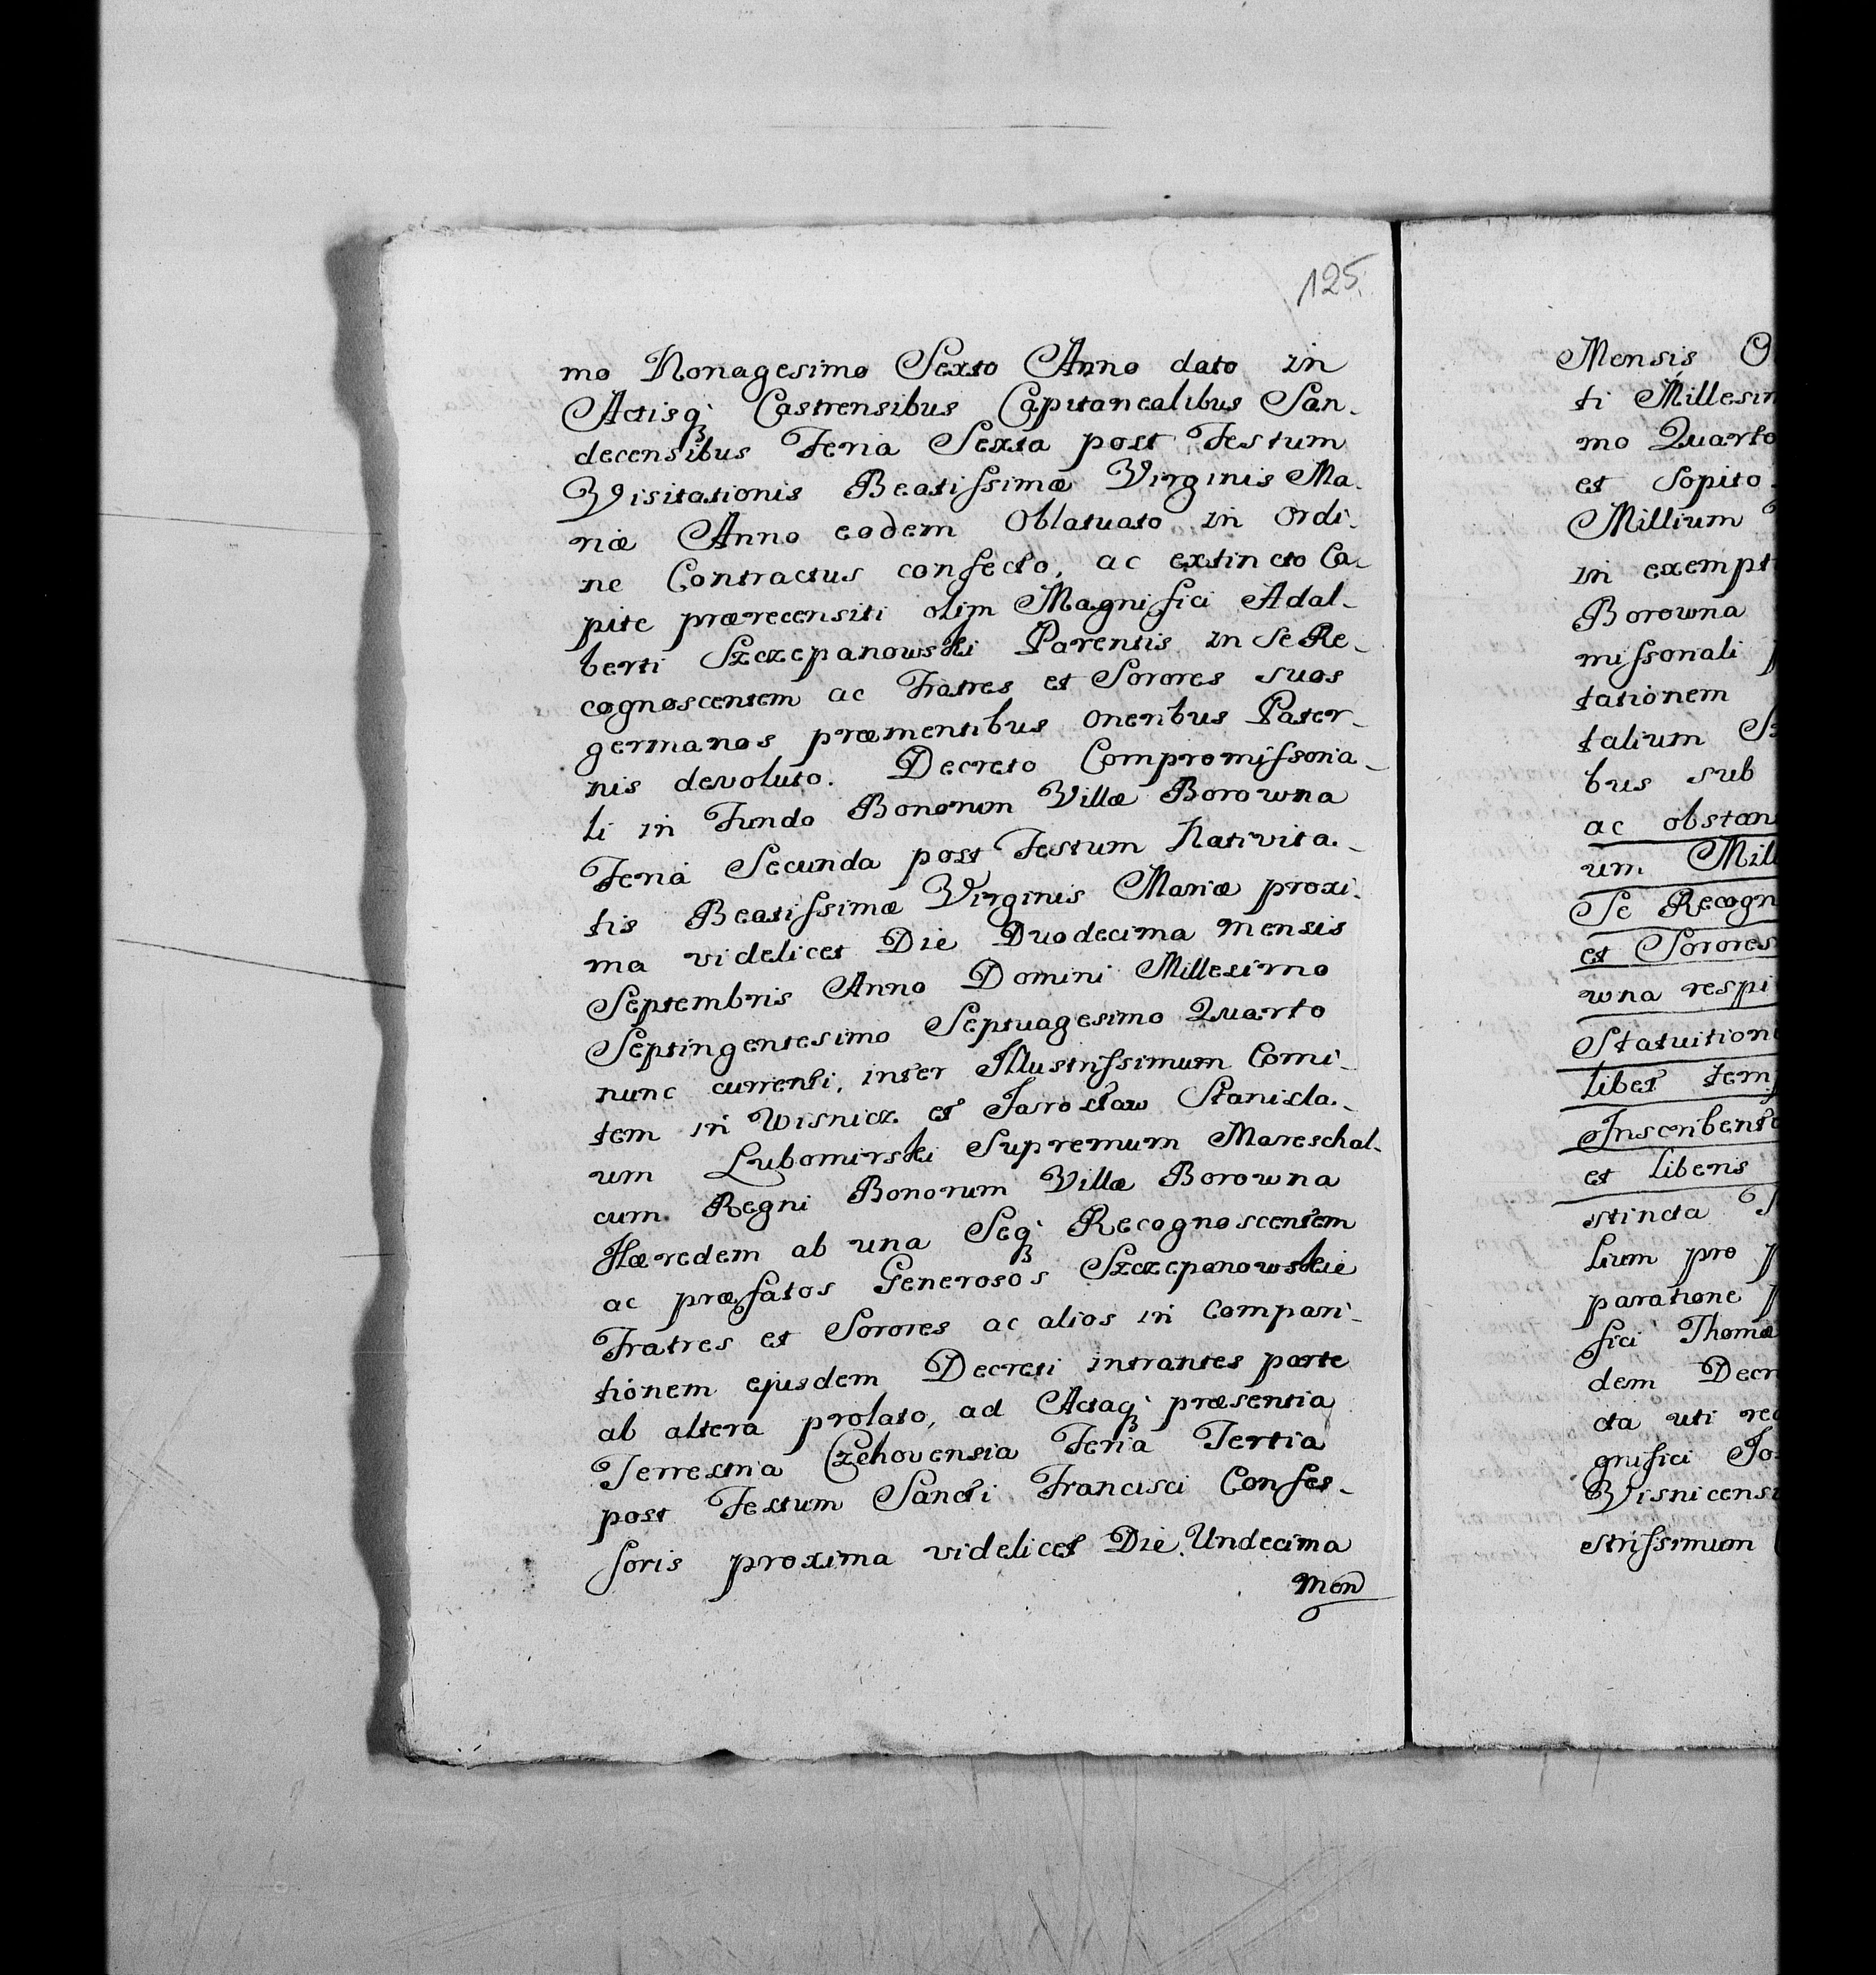 125.
mo Nonagesimo Sexto Anno dato in
Actisq3 Castrensibus Capitanealibus San-
decensibus Feria Sexta post Festum
Visitationis Beatissimæ Virginis Ma-
riæ Anno eodem Oblatuato in Ordi-
ne Contractus confecto, ac extincto Ca-
pite prærecensiti olim Magnifici Adal-
berti Szczepanowski Parentis in Se Re-
cognoscentem ac Fratres et Sorores suos
germanos præmentibus oneribus Pater-
nis devoluto. Decreto Compromissoria-
li in Fundo Bonorum Villæ Borowna
Feria Secunda post Festum Nativita-
tis Beatissimæ Virginis Mariæ proxi-
ma videlicet Die Duodecima mensis
Septembris Anno Domini Millesimo
Septingentesimo Septuagesimo Quarto
nunc currenti, inter Illustrissimum Comi-
tem in Wisnicz et Jarosław Stanisla-
um Lubomirski Supremum Mareschal-
cum Regni Bonorum Villæ Borowna
Hæredem ab una Seq3 Recognoscentem
ac præfatos Generosos Szczepanowskie
Fratres et Sorores ac alios in Compari-
tionem ejusdem Decreti intrantes parte
ab altera prolato, ad Actaq3 præsentia
Terrestria Czchoviensia Feria Tertia
post Festum Sancti Francisci Confes-
soris proxima videlicet Die Undecima
Men
Mensis
ti Millesim
mo Quarto
et Sopito
Millium
in exempt
Borowna
missoriali
tationem
talium
bus sub
ac obstan
um Mill
Se Recogn
et Sorores
wna respi
Statuition
libet temp
Inscribente
et libens
stincta
lium pro
paratione
fici Thomæ
dem Decr
cta uti rec
gnifici Jo
Visnicensi
strissimum